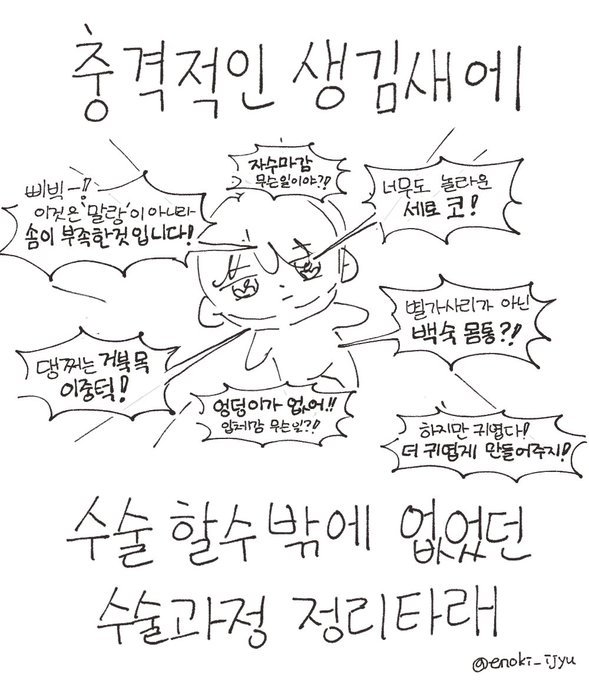 충격적인 생김새에
자수마감
무슨일이야?!
삐빅-!
이것은 '말랑'이 아니라
솜이 부족한것입니다!
너무도 놀라운
세로 코!
별가사리가 아닌
백숙 몸통?!
댕쩌는 거북목
이중턱!
엉덩이가 없어!!
입체감 무슨일?!
하지만 귀엽다!
더 귀엽게 만들어주지!
수술 할수밖에 없었던
수술과정 정리타래
@enoki_ijyu